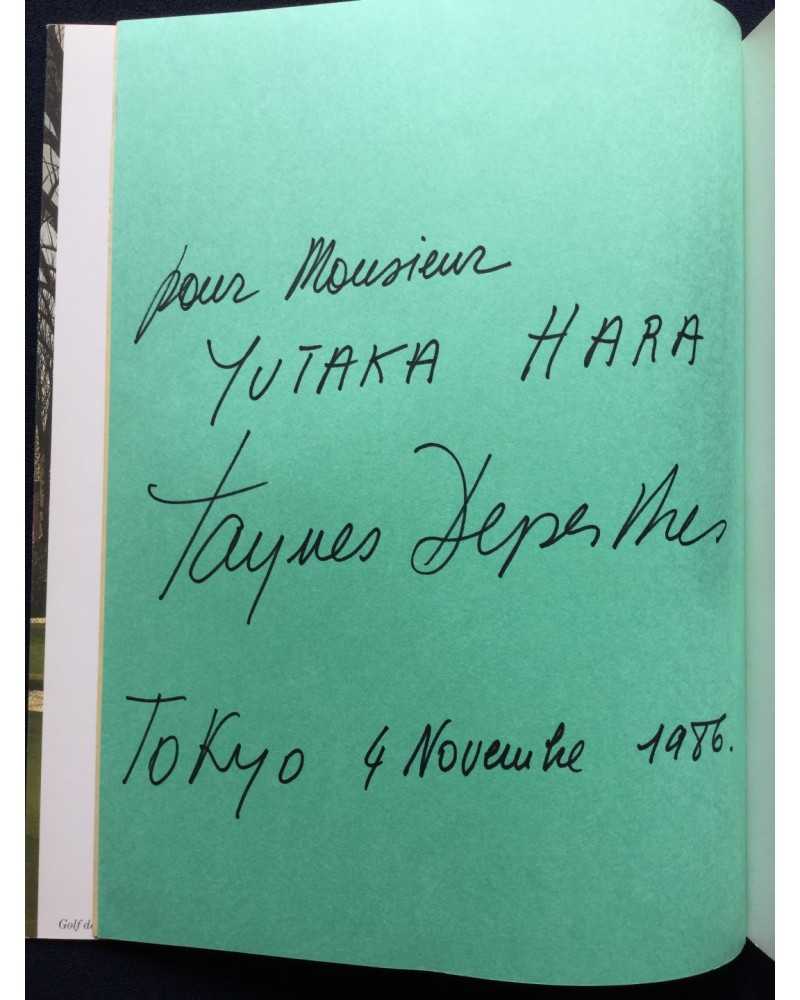 pour Monsieur
YUTAKA HARA
Jaques Deperthes
TOKYO 4 Novembre 1986.
Golf de